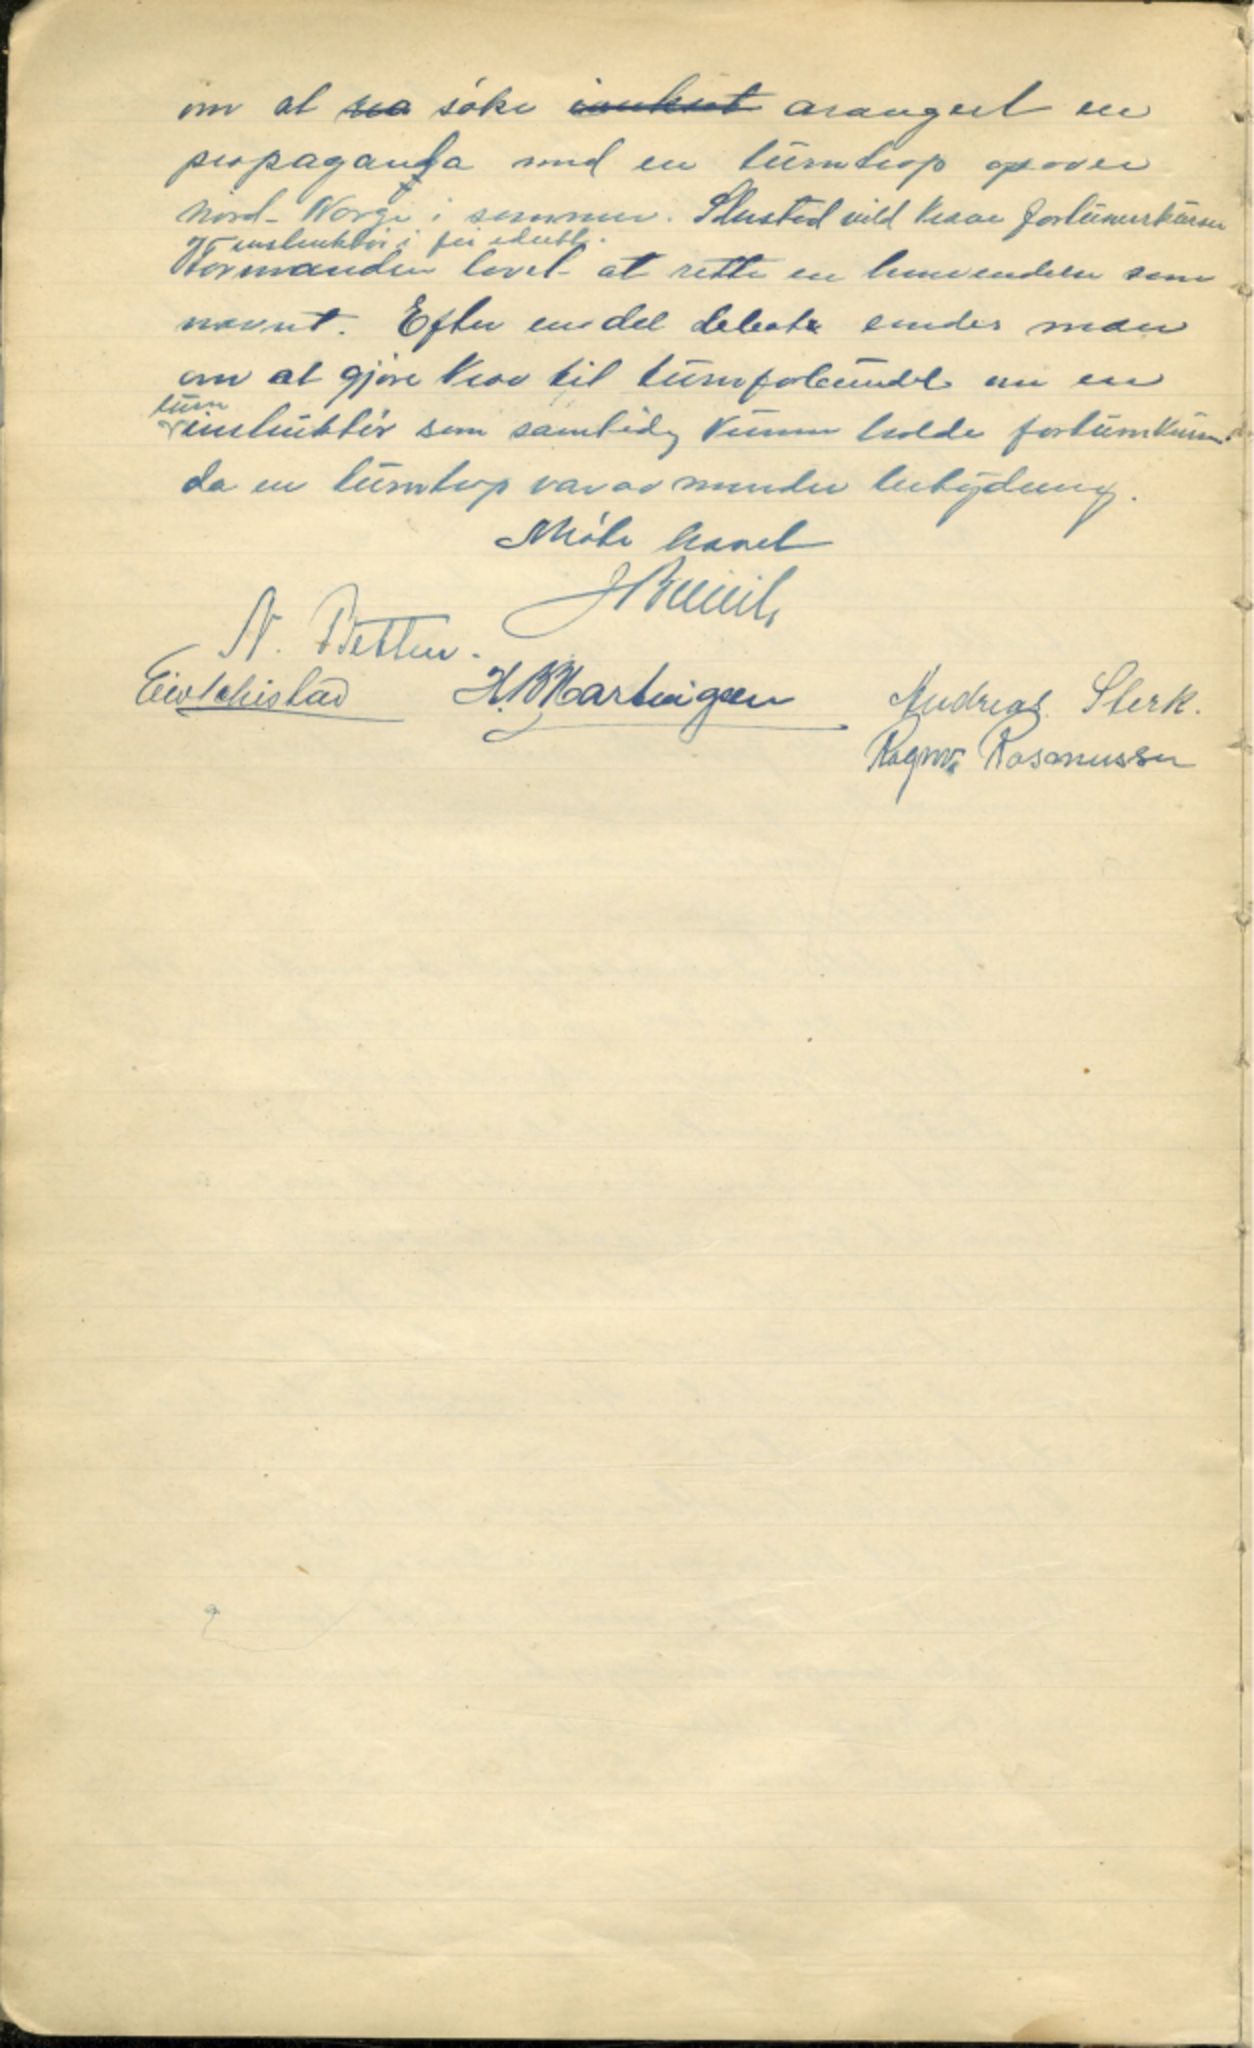 om at søke arangert en
propaganda med en turntrop opover
Nord-Norge i sommer. vild krave forturnerkursen
instruktør i fri idrett.
Formanden lovet at rette en henvendelse som
nævnt. Efter en del debat enedes man
om at gjøre krav til turnforbundet om en
turn
instruktør som samtidig kunne holde forturnkursus
da en turntrop var av mindre betydning.
Møte hævet
N. Petter.
H. B. Hartvigsen Andreas Sterk.
Ragnv. Rasmussen